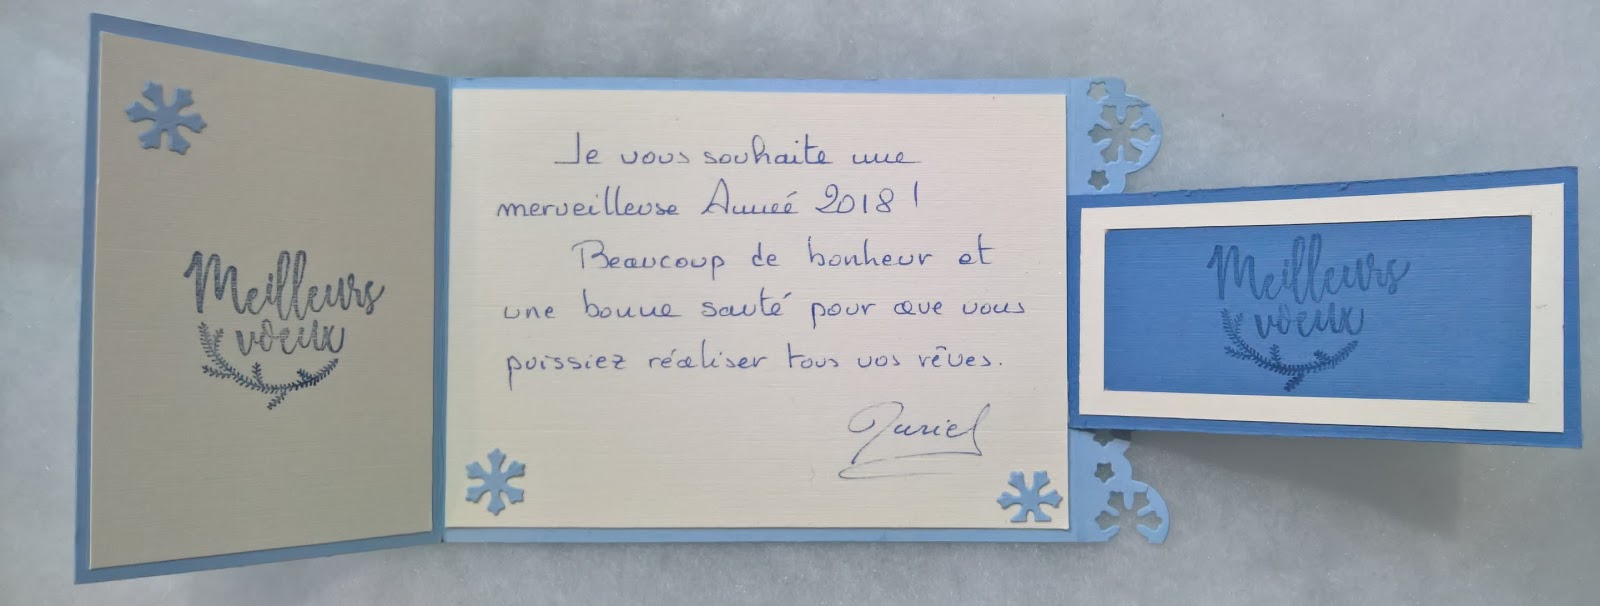 Meilleurs
voeux
Je vous souhaite une
merveilleuse Année 2018 !
Beaucoup de bonheur et
une bonne santé pour que vous
puissiez réaliser tous vos rêves.
Muriel
Meilleurs
voeux